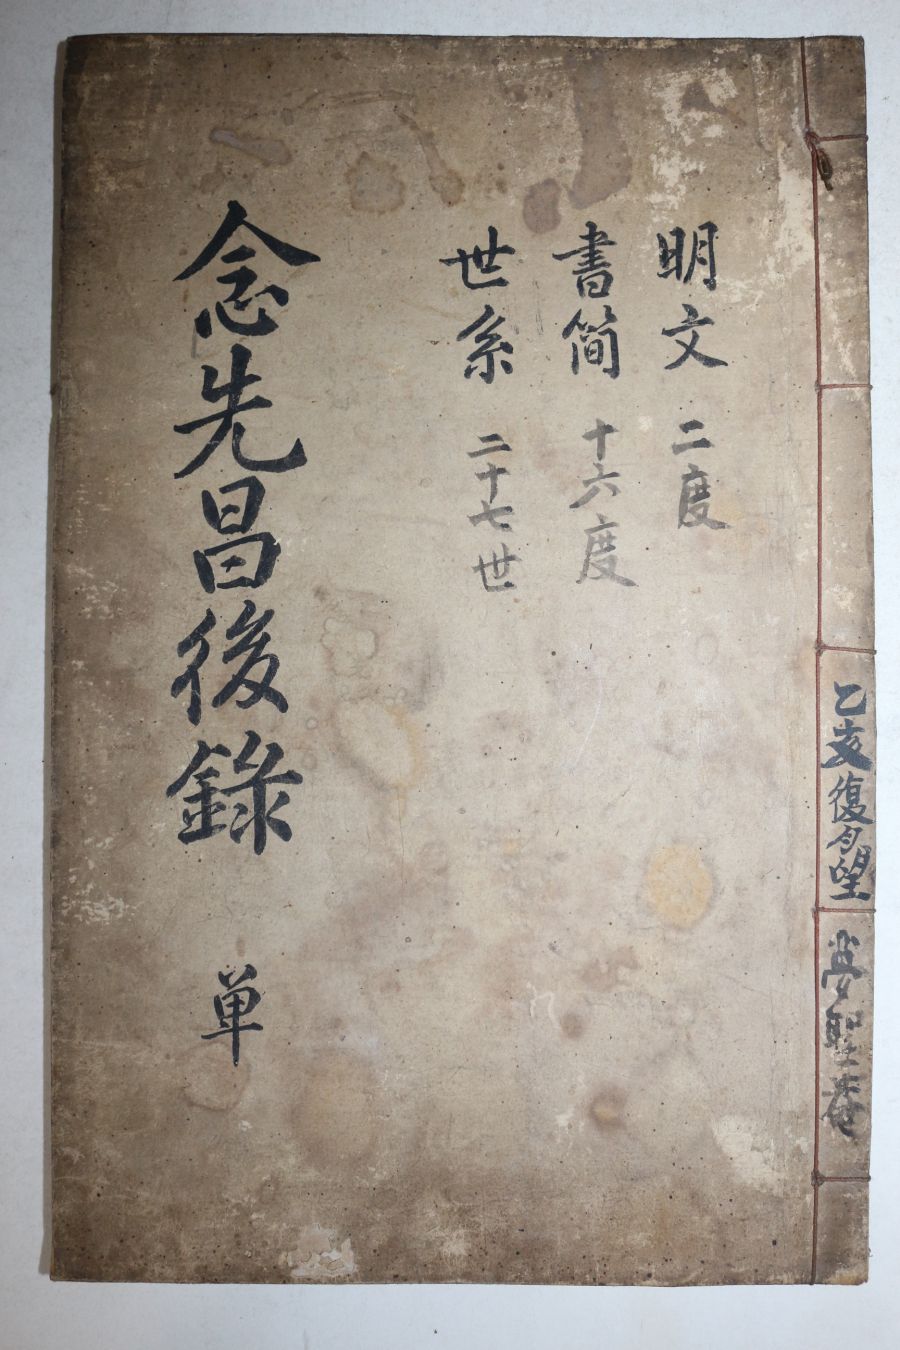 乙亥復月望 夢聖菴
明文 二度
書簡 十六度
世系 二十七世
念先昌後錄 単